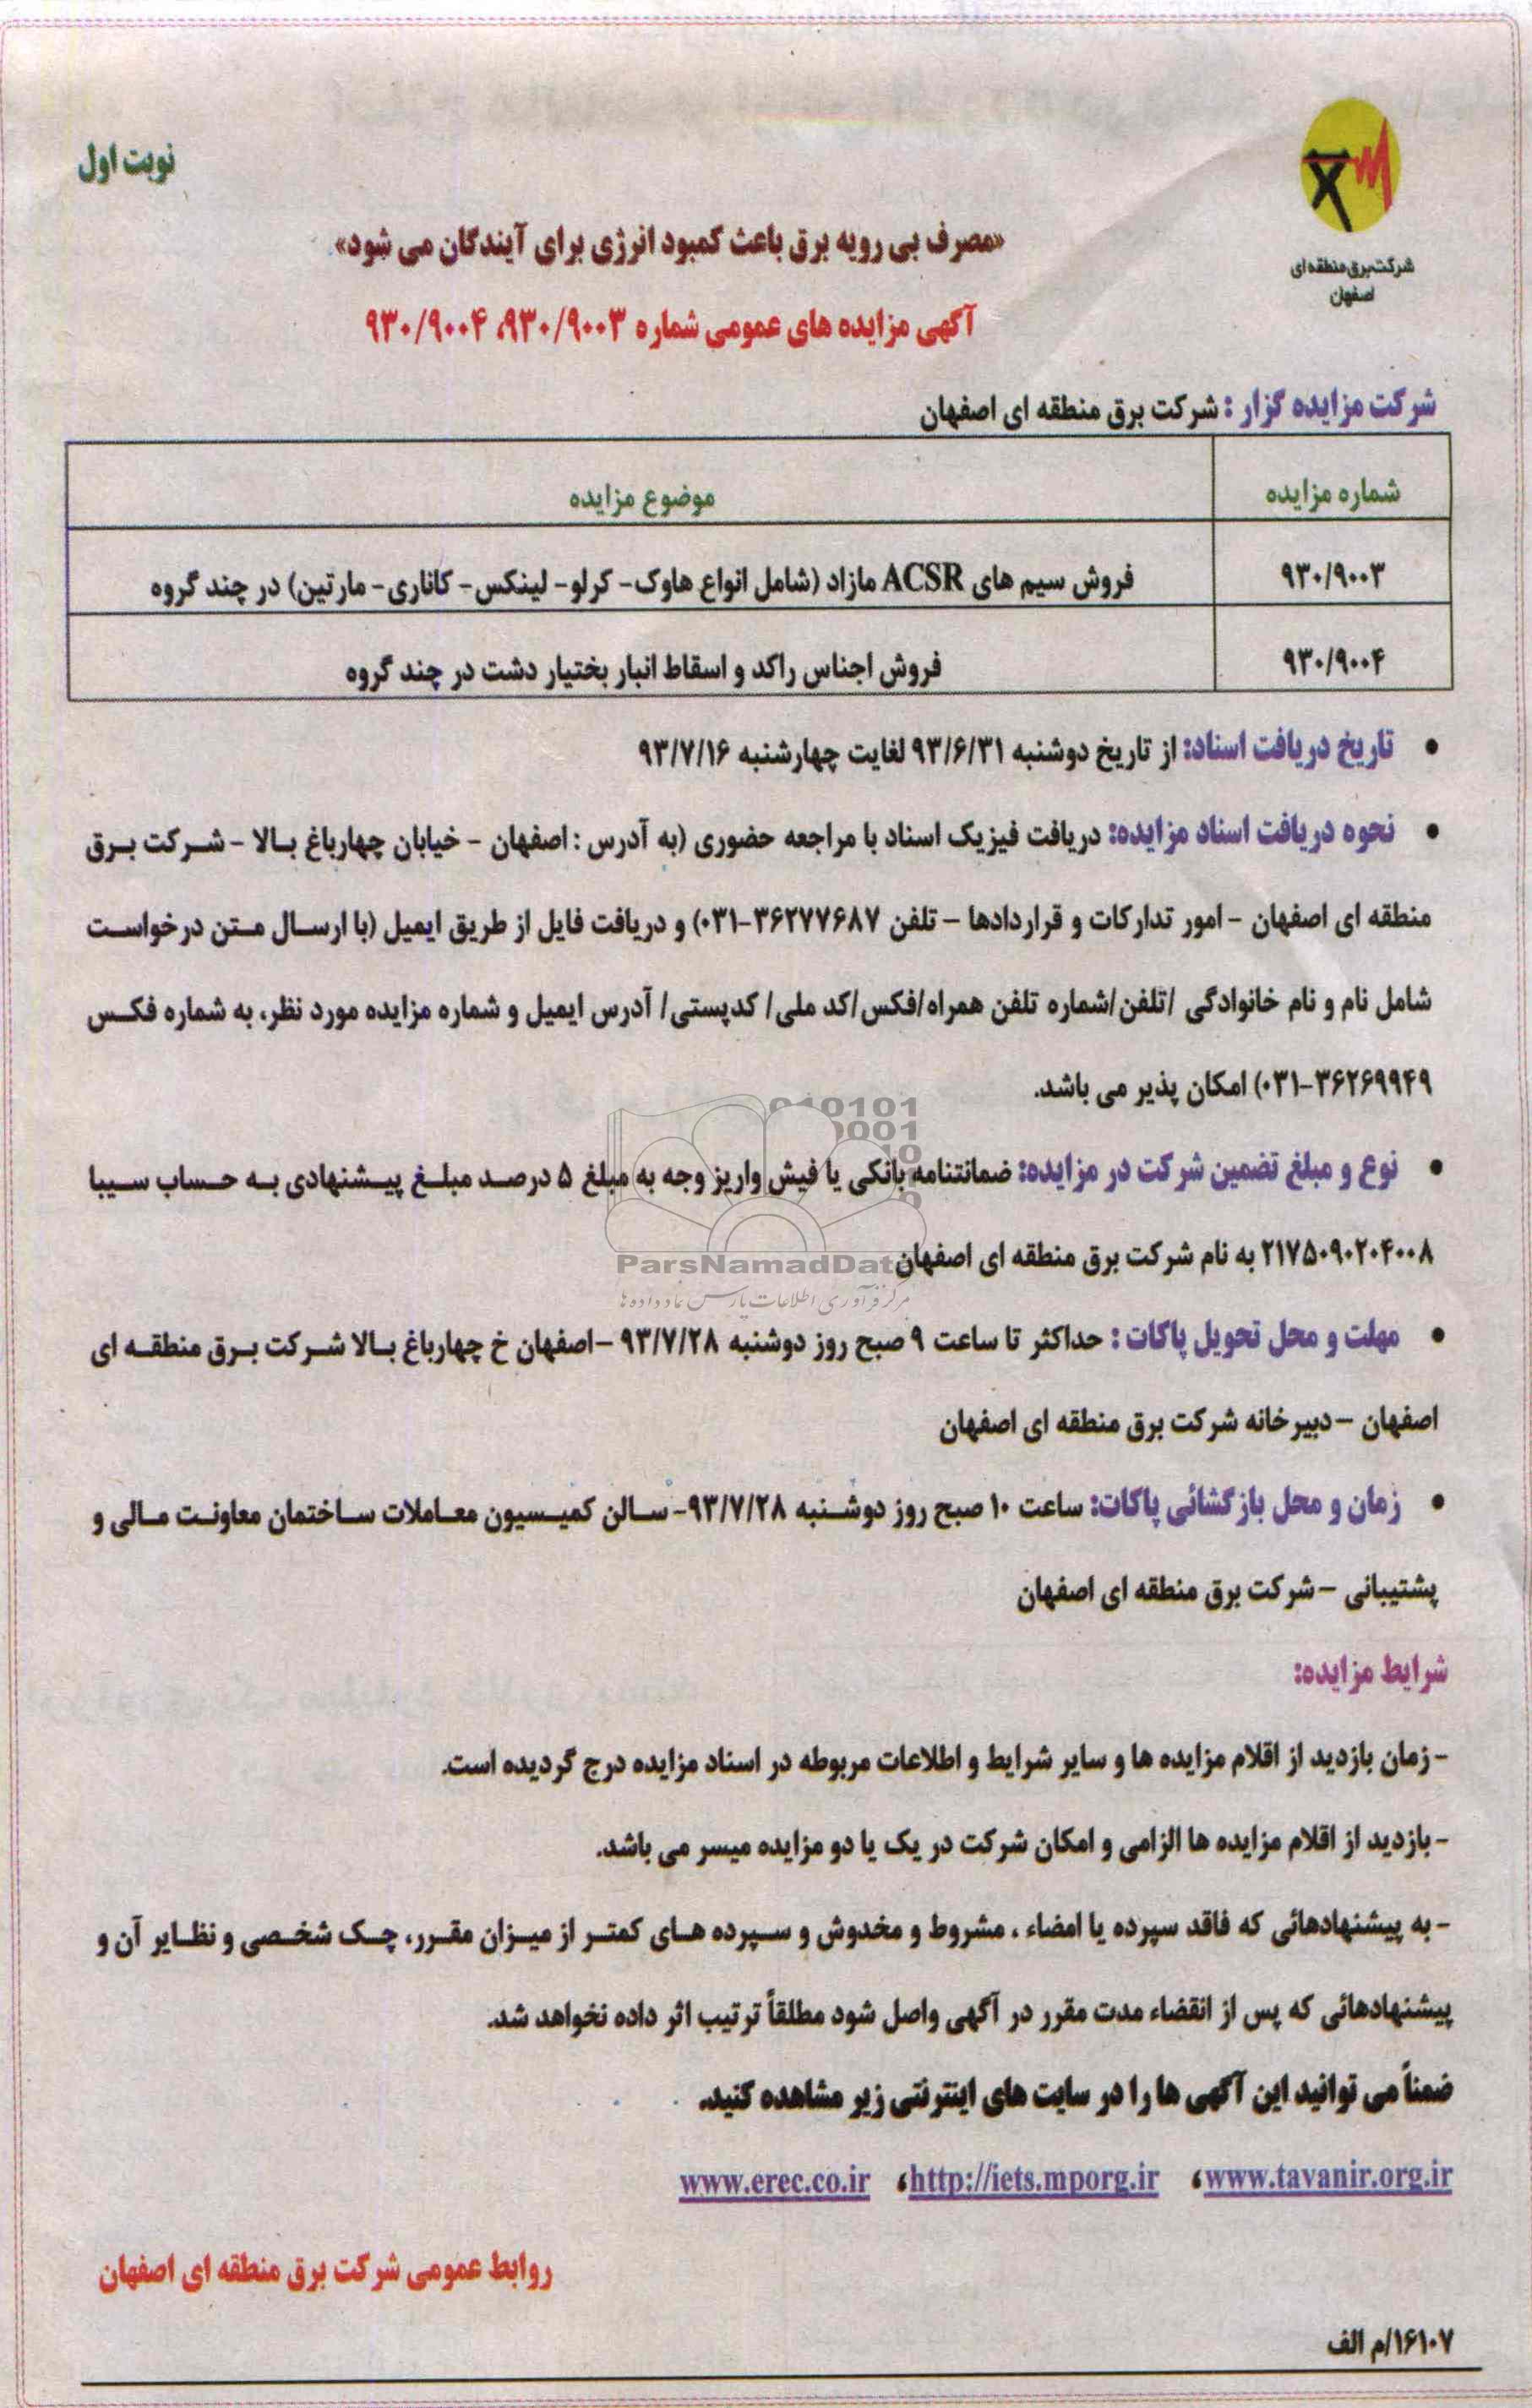 نوبت اول
شرکت برق منطقه ای
اصفهان
«مصرف بی رویه برق باعث کمبود انرژی برای آیندگان می شود»
آگهی مزایده های عمومی شماره ۹۳۰/۹۰۰۳، ۹۳۰/۹۰۰۴
شرکت مزایده گزار : شرکت برق منطقه ای اصفهان
شماره مزایده موضوع مزایده
۹۳۰/۹۰۰۳ فروش سیم های ACSR مازاد (شامل انواع هاوک- کرلو- لینکس- کاناری- مارتین) در چند گروه
۹۳۰/۹۰۰۴ فروش اجناس راکد و اسقاط انبار بختیار دشت در چند گروه
• تاریخ دریافت اسناد: از تاریخ دوشنبه ۹۳/۶/۳۱ لغایت چهارشنبه ۹۳/۷/۱۶
• نحوه دریافت اسناد مزایده: دریافت فیزیک اسناد با مراجعه حضوری (به آدرس : اصفهان - خیابان چهارباغ بالا - شرکت برق
منطقه ای اصفهان - امور تدارکات و قراردادها - تلفن ۳۶۲۷۷۶۸۷-۰۳۱) و دریافت فایل از طریق ایمیل (با ارسال متن درخواست
شامل نام و نام خانوادگی /تلفن/شماره تلفن همراه/فکس/کد ملی/ کدپستی/ آدرس ایمیل و شماره مزایده مورد نظر، به شماره فکس
۳۶۲۶۹۹۴۹-۰۳۱) امکان پذیر می باشد.
• نوع و مبلغ تضمین شرکت در مزایده: ضمانتنامه بانکی یا فیش واریز وجه به مبلغ ۵ درصد مبلغ پیشنهادی به حساب سیبا
۲۱۷۵۰۹۰۲۰۴۰۰۸ به نام شرکت برق منطقه ای اصفهان
ParsNamadData
مرکز فرآوری اطلاعات پارس نماد داده ها
• مهلت و محل تحویل پاکات : حداکثر تا ساعت ۹ صبح روز دوشنبه ۹۳/۷/۲۸ -اصفهان خ چهارباغ بالا شرکت برق منطقه ای
اصفهان -دبیرخانه شرکت برق منطقه ای اصفهان
• زمان و محل بازگشائی پاکات: ساعت ۱۰ صبح روز دوشنبه ۹۳/۷/۲۸- سالن کمیسیون معاملات ساختمان معاونت مالی و
پشتیبانی -شرکت برق منطقه ای اصفهان
شرایط مزایده:
- زمان بازدید از اقلام مزایده ها و سایر شرایط و اطلاعات مربوطه در اسناد مزایده درج گردیده است.
- بازدید از اقلام مزایده ها الزامی و امکان شرکت در یک یا دو مزایده میسر می باشد.
- به پیشنهادهائی که فاقد سپرده یا امضاء ، مشروط و مخدوش و سپرده های کمتر از میزان مقرر، چک شخصی و نظایر آن و
پیشنهادهائی که پس از انقضاء مدت مقرر در آگهی واصل شود مطلقاً ترتیب اثر داده نخواهد شد.
ضمناً می توانید این آگهی ها را در سایت های اینترنتی زیر مشاهده کنید.
www.tavanir.org.ir، http://iets.mporg.ir، www.erec.co.ir
روابط عمومی شرکت برق منطقه ای اصفهان
۱۶۱۰۷/م الف